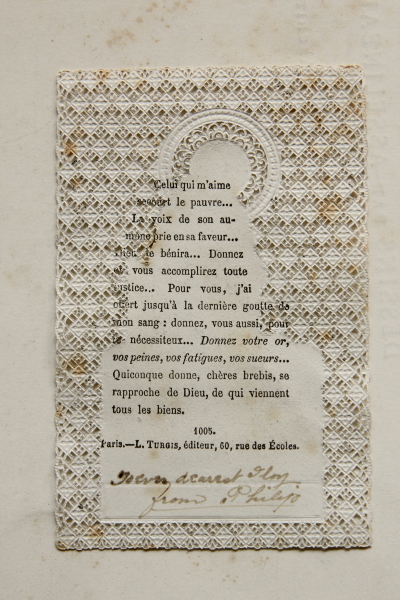 Celui qui m'aime
secourt le pauvre...
La voix de son au-
mône prie en sa faveur...
Dieu te bénira... Donnez
et vous accomplirez toute
justice... Pour vous, j'ai
offert jusqu'à la dernière goutte de
mon sang : donnez, vous aussi, pour
le nécessiteux... Donnez votre or,
vos peines, vos fatigues, vos sueurs...
Quiconque donne, chères brebis, se
rapproche de Dieu, de qui viennent
tous les biens.
1005.
Paris.—L. TURGIS, éditeur, 60, rue des Écoles.
dearest
from Philip